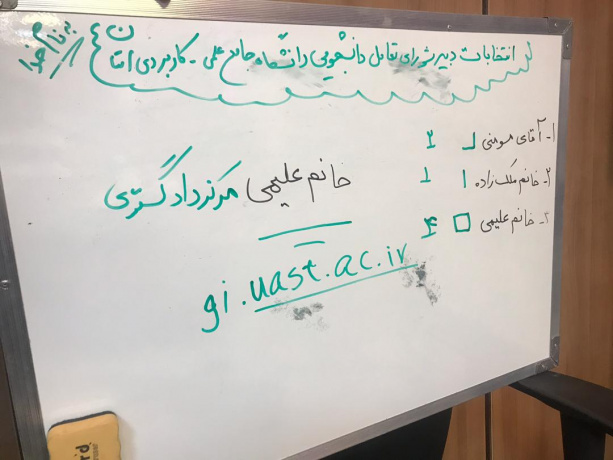 به نام خدا
انتخابات دبیر شورای تعامل دانشجویی دانشگاه جامع علمی - کاربردی استان
۱- آقای مومنی ۲
۲- خانم ملک زاده ۱
۳- خانم علیمی ۴
خانم علیمی مرکز دادگستری
gi.uast.ac.ir
rd